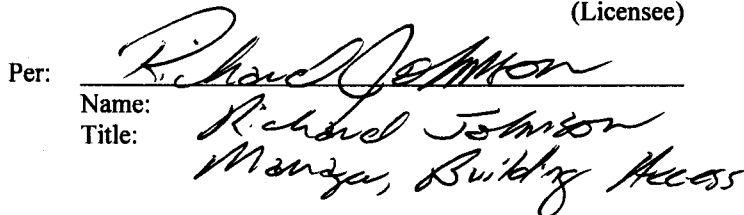 (Licensee)
Per: Richard Johnson
Name: Richard Johnson
Title: Manager, Building Access